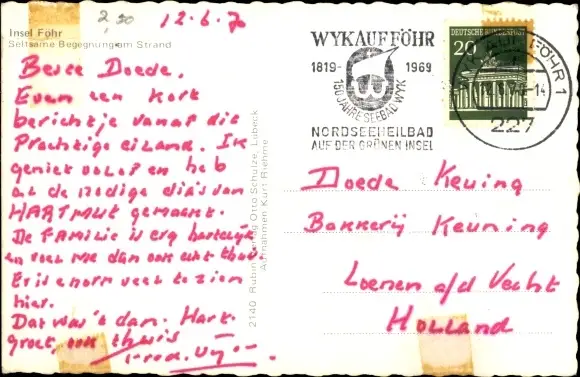 2,50
12.6.70
Insel Föhr
Seltsame Begegnung am Strand
Beste Doede,
Even een kort
berichtje vanaf dit
Prachtige eiland. Ik
geniet volop en heb
al de nodige dia's van
HARTMUT gemaakt.
De FAMILIE is erg hartelijk
en voel me dan ook echt thuis.
Er is enorm veel te zien
hier.
Dat was't dan. Hart.
groet, ook thuis
2140 Rubin-Verlag Otto Schulze, Lübeck
Aufnahmen Kurt Riehme
WYK AUF FÖHR
1819- 1969
150 JAHRE SEEBAD WYK
NORDSEEHEILBAD
AUF DER GRÜNEN INSEL
DEUTSCHE BUNDESPOST
20
FÖHR 1
-14
227
Doede Keuning
Bakkerij Keuning
Loenen a/d Vecht
HOLLAND